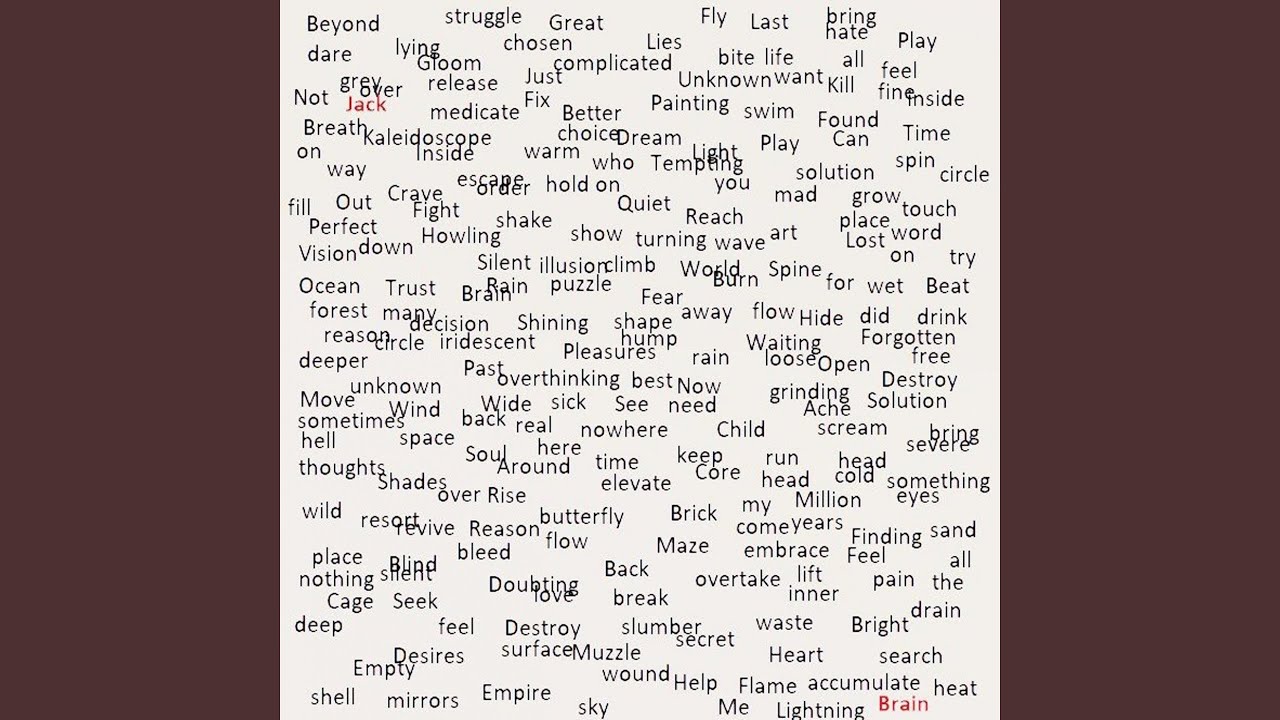 Beyond struggle Great Fly Last bring
hate
dare lying chosen Lies Play
Gloom complicated bite life all
grey over release Just Unknown want Kill feel
fine
Not Jack medicate Fix Better Painting swim inside
Found
Breath Kaleidoscope choice Dream Play Can Time
on Inside warm who Tempting Light spin
way escape order hold on you solution circle
fill Out Crave Quiet mad grow
Fight shake Reach place touch
Perfect Howling show turning wave art Lost word
Vision down on try
Silent illusion climb World Spine
Ocean Trust Brain Rain puzzle Burn for wet Beat
Fear
forest many decision Shining shape away flow Hide did drink
reason circle iridescent hump Waiting Forgotten
deeper Pleasures rain loose Open free
Past
unknown overthinking best Now grinding Destroy
Move Wind Wide sick See need Ache Solution
sometimes back real nowhere Child scream bring
hell space severe
Soul here keep run head
thoughts Around time Core cold
Shades elevate head something
over Rise my Million eyes
wild resort butterfly Brick
revive Reason come years Finding sand
flow Maze
place bleed embrace Feel all
Blind Back
nothing silent Doubting overtake lift pain the
love inner
Cage Seek break drain
deep feel Destroy slumber waste Bright
secret
Desires surface Muzzle Heart search
Empty wound
Help Flame accumulate heat
shell mirrors Empire sky Me Lightning Brain